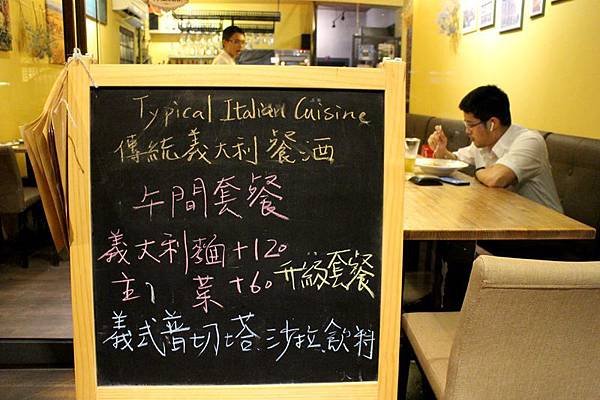 Typical Italian Cuisine
傳統義大利餐酒
午間套餐
義大利麵+120
主菜+60 升級套餐
義式普切塔 沙拉 飲料